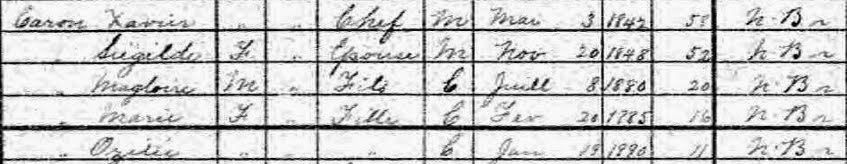 Caron Xavier " " Chef M Mai 3 1842 58 N. B r
" Suzilde F " Epouse M Nov 20 1848 52 N. B r
" Magloire M " Fils C Juill 8 1880 20 N. B r
" Marie F " Fille C Fev 20 1885 16 N. B r
" Ozilie " " " C Jan 19 1890 11 N. B r